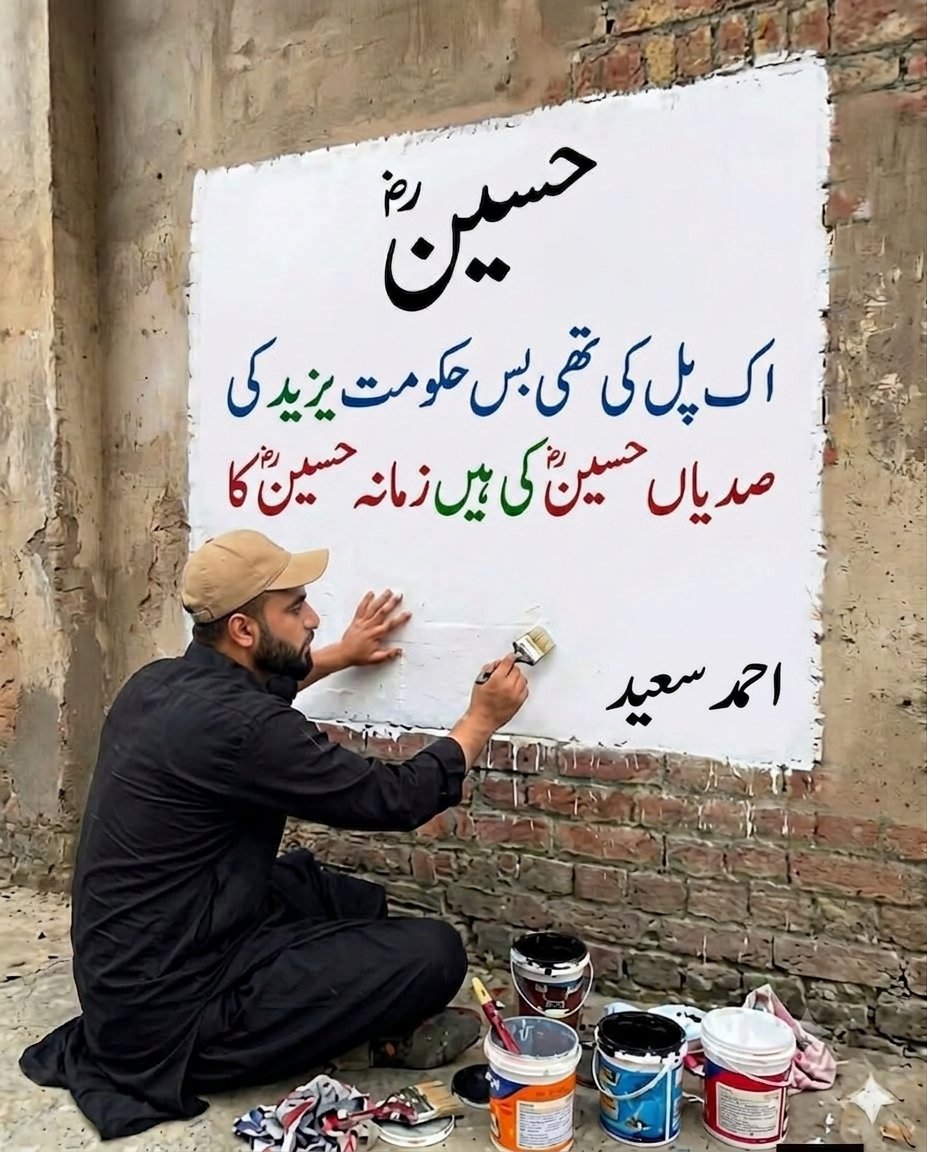 حسینؓ
اک پل کی تھی بس حکومت یزید کی
صدیاں حسینؓ کی ہیں زمانہ حسینؓ کا
احمد سعید